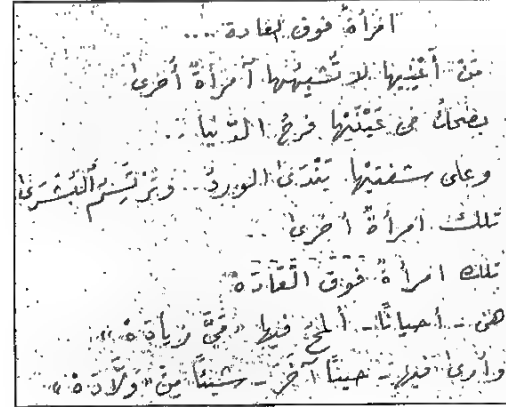 امرأة فوق العادة ....
مَنْ أَعْنِيها لا تُشْبِهُها آمرأةٌ أُخرىٰ
يضحكُ في عَيْنَيْها فرحُ الدّنيا ..
وعلى شفتيْها يَنْدَىٰ الوردُ .. وتَرْتَسِمُ ٱلْبُشْرَىٰ
تلك امرأةٌ أخرىٰ ..
تلك امرأةٌ فَوْقَ الْعَادَهْ
هي - أحيانًا - ألمحُ فيها « مَيَّ زيادَهْ »
وأرىٰ فيها - حينًا آخَرَ - شيئًا مِنْ « وَلَّادَهْ »